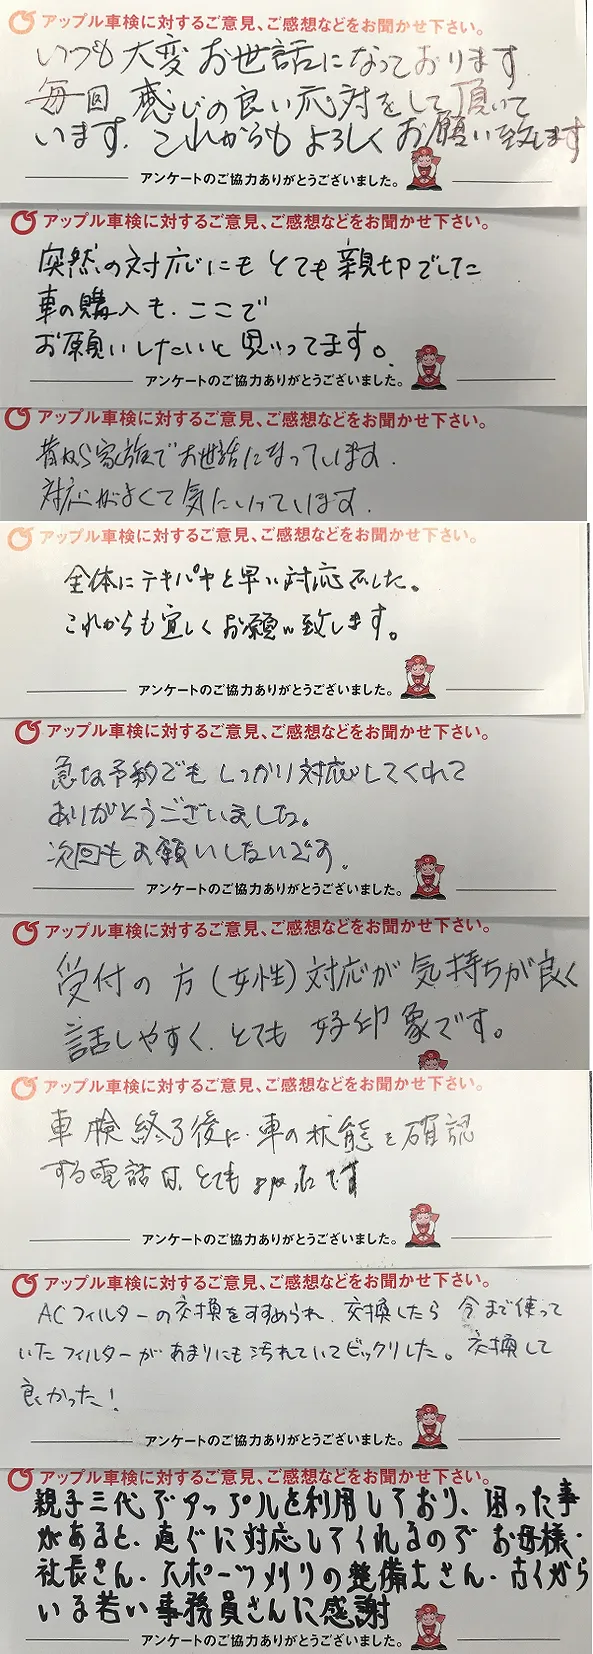 アップル車検に対するご意見、ご感想などをお聞かせ下さい。
いつも大変お世話になっております
毎回 感じの良い応対をして頂いて
います. これからもよろしくお願い致します
アンケートのご協力ありがとうございました。
アップル車検に対するご意見、ご感想などをお聞かせ下さい。
突然の対応にもとても親切でした
車の購入も、ここで
お願いしたいと思ってます。
アンケートのご協力ありがとうございました。
アップル車検に対するご意見、ご感想などをお聞かせ下さい。
昔から家族でお世話になっています.
対応がよくて気にいっています.
アップル車検に対するご意見、ご感想などをお聞かせ下さい。
全体にテキパキと早い対応でした。
これからも宜しくお願い致します。
アンケートのご協力ありがとうございました。
アップル車検に対するご意見、ご感想などをお聞かせ下さい。
急な予約でもしっかり対応してくれて
ありがとうございました。
次回もお願いしたいです.
アンケートのご協力ありがとうございました。
アップル車検に対するご意見、ご感想などをお聞かせ下さい。
受付の方(女性)対応が気持ちが良く
話しやすく、とても好印象です。
アップル車検に対するご意見、ご感想などをお聞かせ下さい。
車検終了後に、車の状態を確認
する電話は、とても です
アンケートのご協力ありがとうございました。
アップル車検に対するご意見、ご感想などをお聞かせ下さい。
ACフィルターの交換をすすめられ、交換したら 今まで使って
いたフィルターがあまりにも汚れていてビックリした。交換して
良かった!
アンケートのご協力ありがとうございました。
アップル車検に対するご意見、ご感想などをお聞かせ下さい。
親子三代でアップルを利用しており、困った事
があると、直ぐに対応してくれるので お母様・
社長さん・スポーツメリリの整備士さん・古くから
いる若い事務員さんに感謝
アンケートのご協力ありがとうございました。